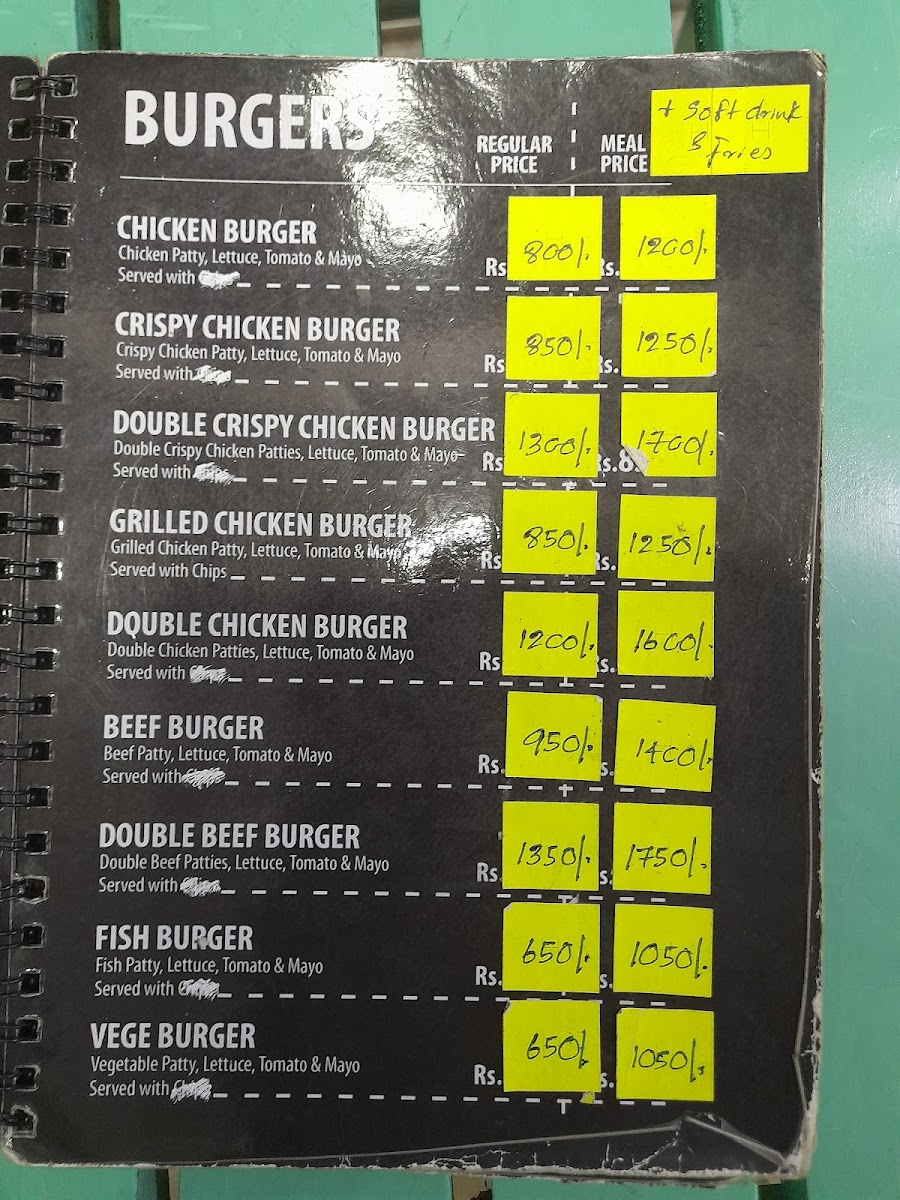 BURGERS
REGULAR PRICE
MEAL PRICE
+ Soft drink
& Fries
CHICKEN BURGER
Chicken Patty, Lettuce, Tomato & Mayo
Served with
Rs 800/. Rs. 1200/.
CRISPY CHICKEN BURGER
Crispy Chicken Patty, Lettuce, Tomato & Mayo
Served with
Rs 850/. Rs. 1250/.
DOUBLE CRISPY CHICKEN BURGER
Double Crispy Chicken Patties, Lettuce, Tomato & Mayo
Served with
Rs 1300/. Rs.8 1700/.
GRILLED CHICKEN BURGER
Grilled Chicken Patty, Lettuce, Tomato & Mayo
Served with Chips
Rs 850/. Rs. 1250/.
DOUBLE CHICKEN BURGER
Double Chicken Patties, Lettuce, Tomato & Mayo
Served with
Rs 1200/. Rs. 1600/.
BEEF BURGER
Beef Patty, Lettuce, Tomato & Mayo
Served with
Rs. 950/. s. 1400/.
DOUBLE BEEF BURGER
Double Beef Patties, Lettuce, Tomato & Mayo
Served with
Rs. 1350/. s. 1750/.
FISH BURGER
Fish Patty, Lettuce, Tomato & Mayo
Served with
Rs. 650/. s. 1050/.
VEGE BURGER
Vegetable Patty, Lettuce, Tomato & Mayo
Served with
Rs. 650/. s. 1050/.